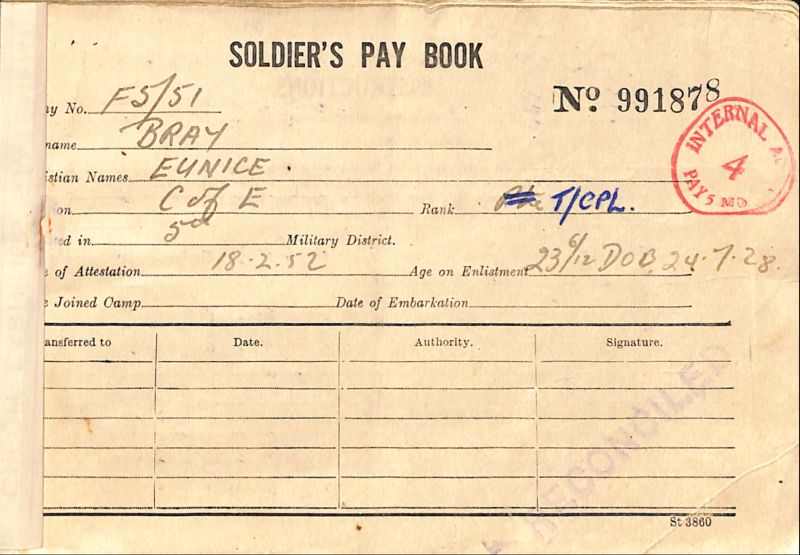 SOLDIER'S PAY BOOK
No 991878
y No. F5/51
name BRAY
istian Names EUNICE
on C of E Rank Pte T/CPL.
ed in 5d Military District.
e of Attestation 18.2.52 Age on Enlistment 23 6/12 DOB. 24.7.28.
e Joined Camp Date of Embarkation
ansferred to Date. Authority. Signature.
St 3860
INTERNAL A
4
PAYS MD
RECONCILED